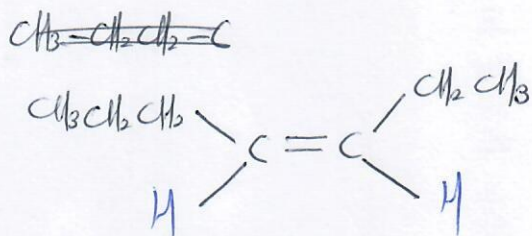 CH3-CH2CH2-C
CH3CH2CH2 CH2CH3
C=C
H H